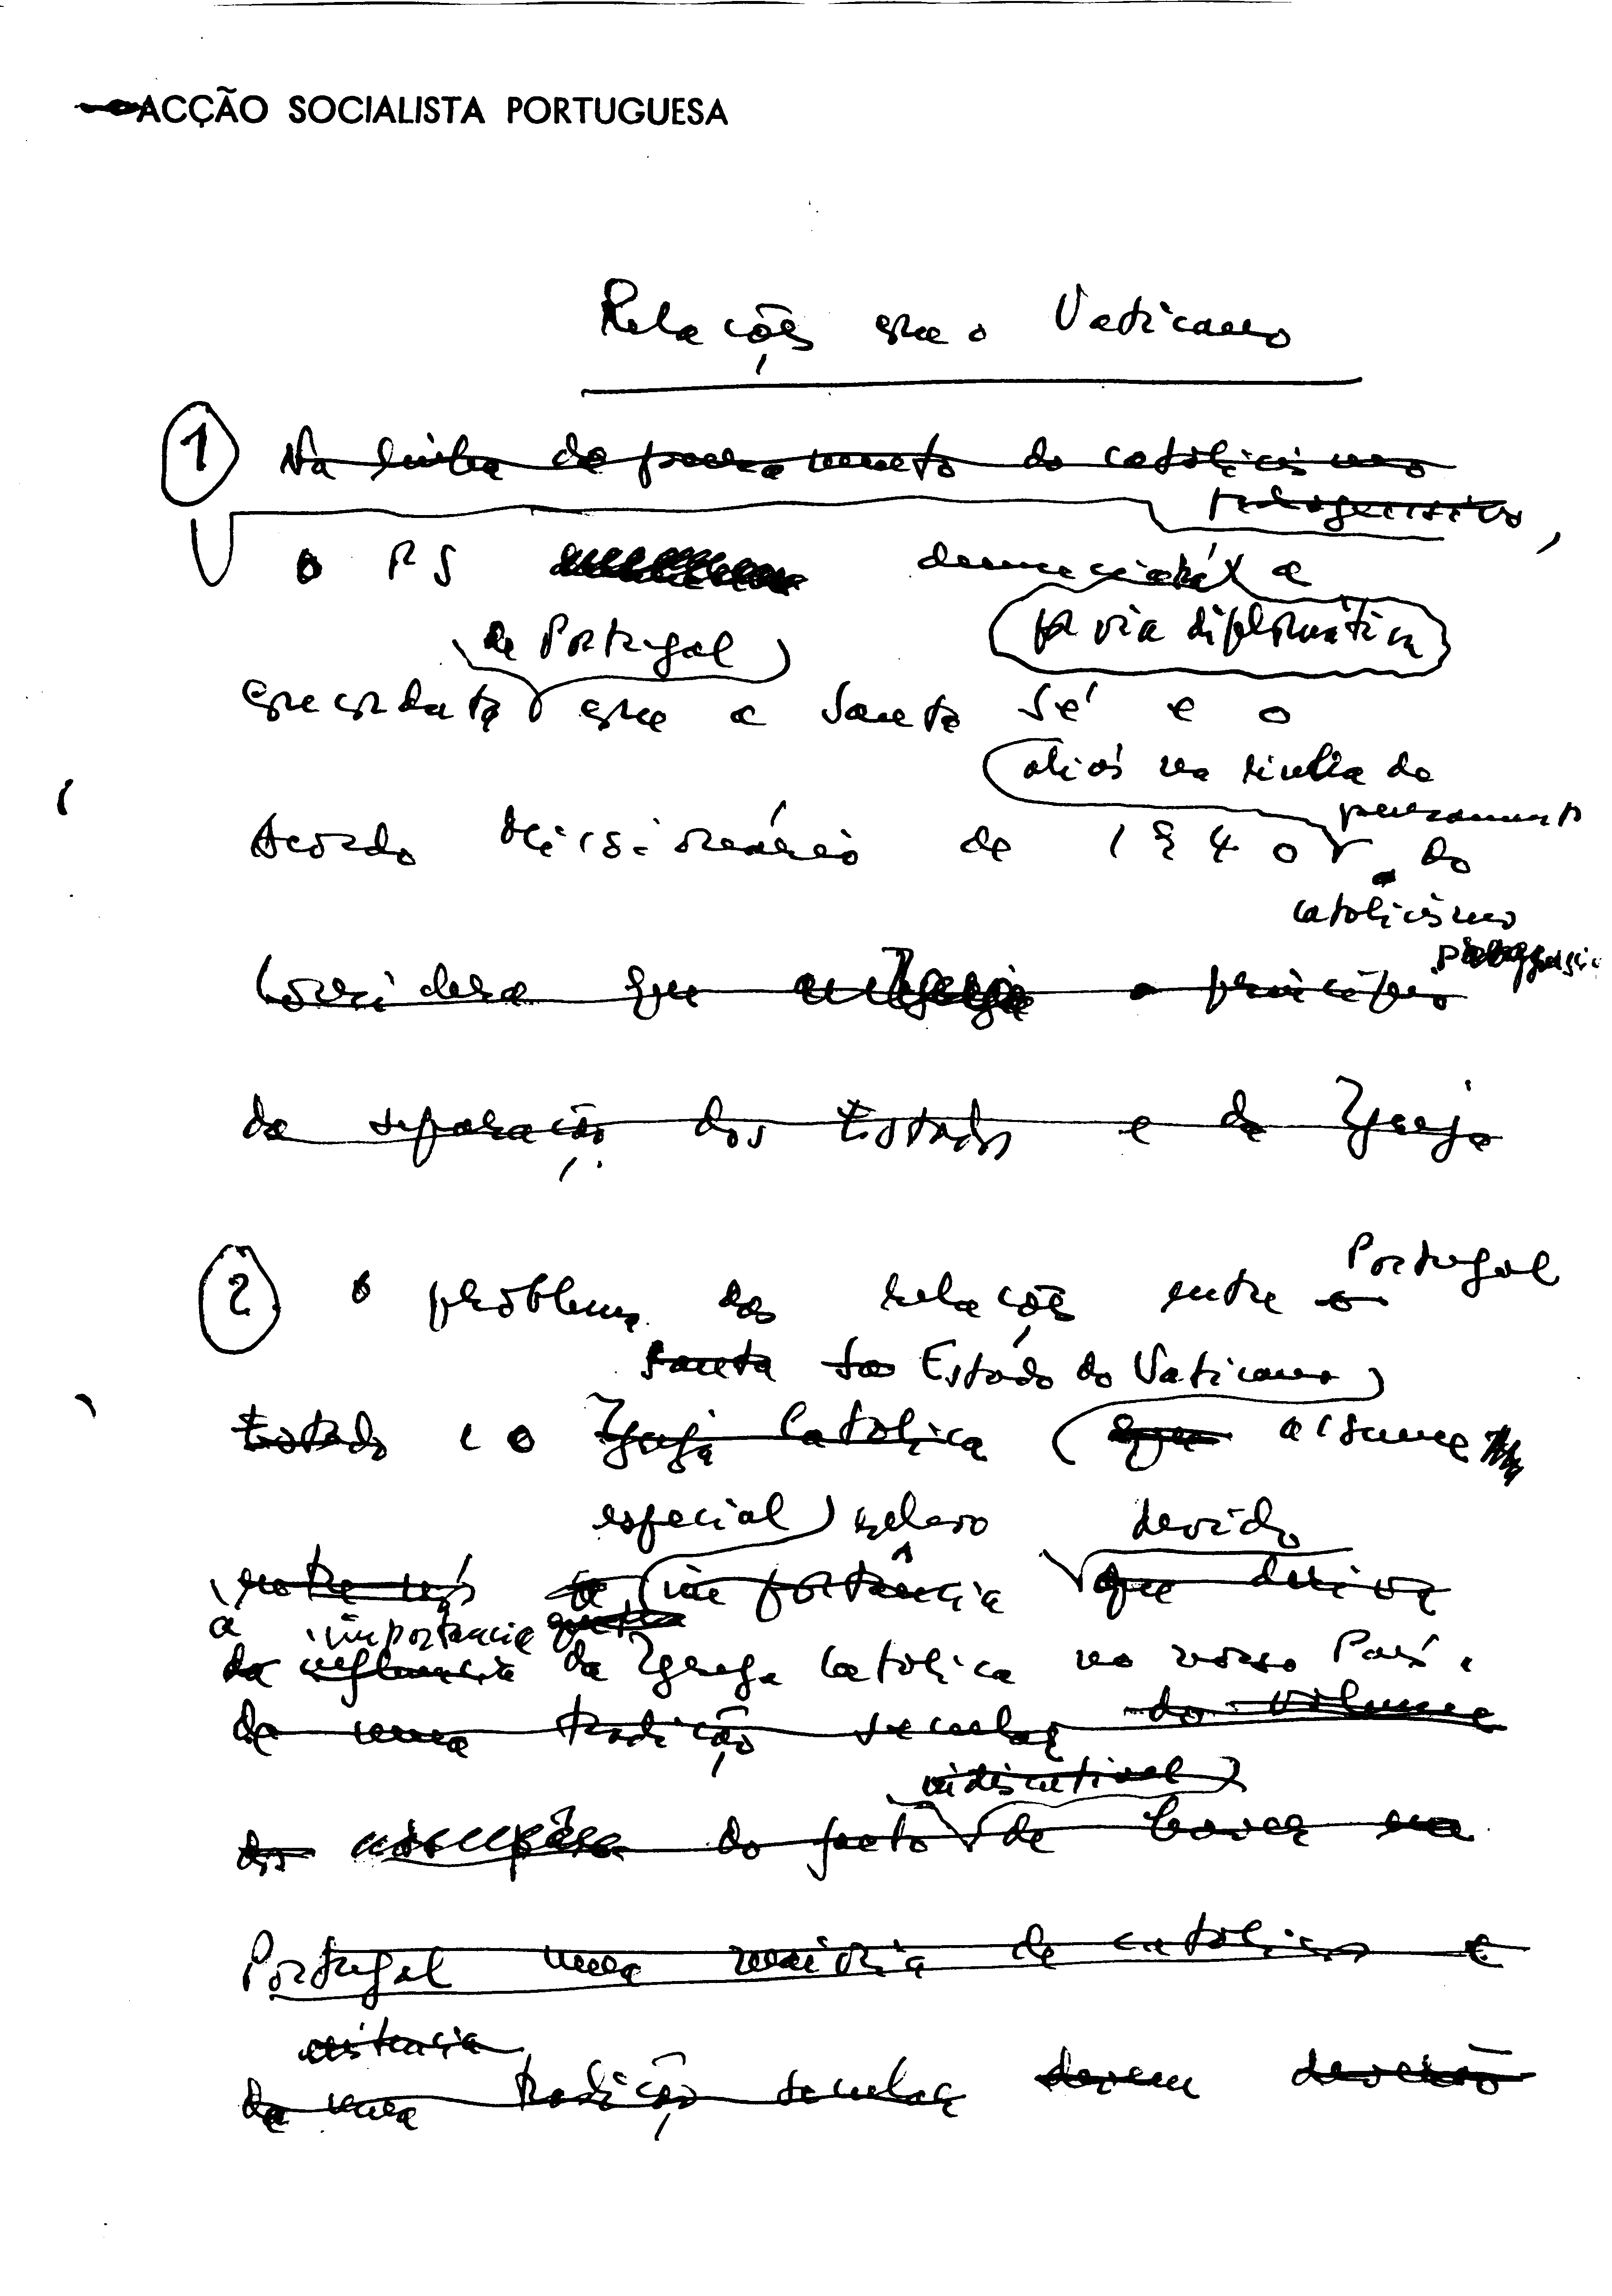 ACÇÃO SOCIALISTA PORTUGUESA
Relações com o Vaticano
1 Na linha do pensamento do catolicismo
progressivo,
O PS denunciará a
por via diplomática
de Portugal
concordata com a Santa Sé e o
aliás na linha do
pensamento
Acordo Missionário de 1940 do
catolicismo
progressi
Considera que o princípio
da separação dos Estados e da Igreja
2 O problema das relações entre o Portugal
Santa Estado do Vaticano
Estado e o Igreja Católica que assume
especial relevo devido
entre nós importância que deriva
a importância
da influência da Igreja Católica no nosso País.
de uma tradição secular do volume
indiscutível
do facto de haver em
Portugal uma maioria de católicos e
existência
da uma tradição secular devem deverão